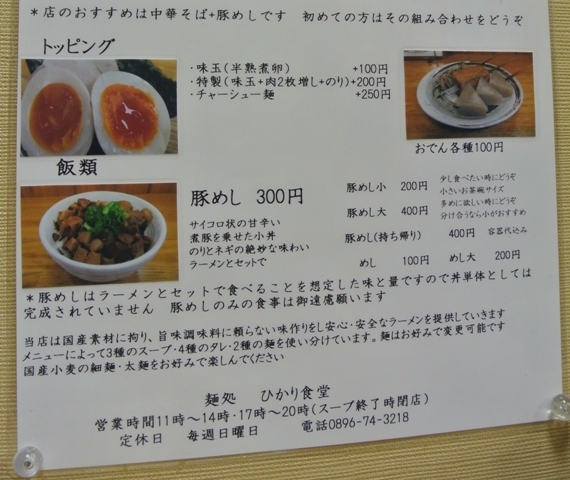 *店のおすすめは中華そば+豚めしです　初めての方はその組み合わせをどうぞ
トッピング
・味玉(半熟煮卵)　+100円
・特製(味玉+肉2枚増し+のり)+200円
・チャーシュー麺　+250円
おでん各種100円
飯類
豚めし 300円
サイコロ状の甘辛い
煮豚を乗せた小丼
のりとネギの絶妙な味わい
ラーメンとセットで
豚めし小　200円
少し食べたい時にどうぞ
小さいお茶碗サイズ
豚めし大　400円
多めに欲しい時にどうぞ
分け合うなら小がおすすめ
豚めし(持ち帰り)　400円　容器代込み
めし　100円　めし大　200円
*豚めしはラーメンとセットで食べることを想定した味と量ですので丼単体としては
完成されていません　豚めしのみの食事は御遠慮願います
当店は国産素材に拘り、旨味調味料に頼らない味作りをし安心・安全なラーメンを提供していきます
メニューによって3種のスープ・4種のタレ・2種の麺を使い分けています。麺はお好みで変更可能です
国産小麦の細麺・太麺をお好みで楽しんでください
麺処　ひかり食堂
営業時間11時～14時・17時～20時(スープ終了時閉店)
定休日　毎週日曜日　電話0896-74-3218